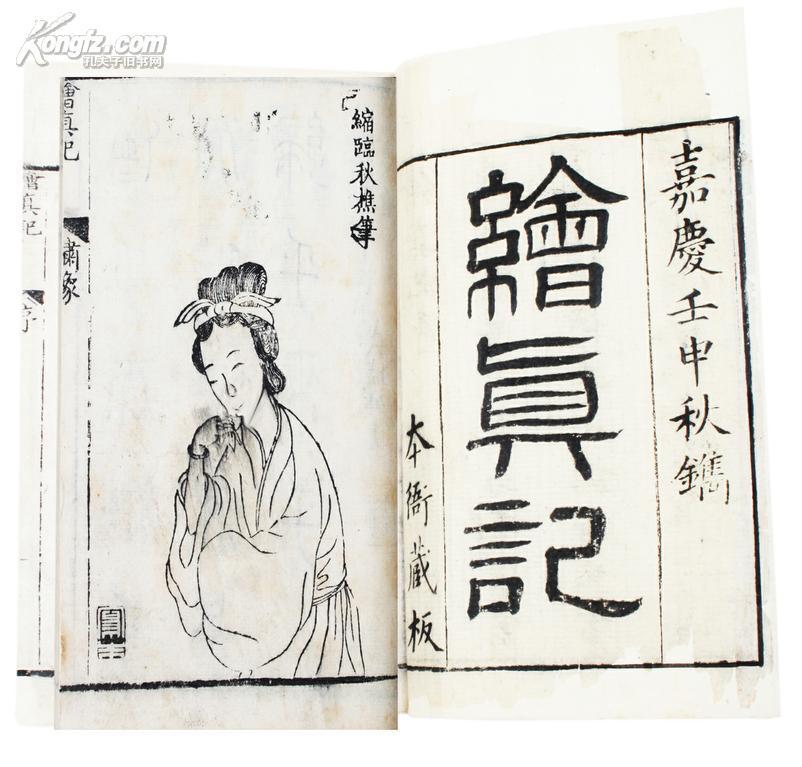 Kongfz.com
孔夫子旧书网
嘉慶壬申秋鐫
繪眞記
本衙藏板
縮臨秋樵筆
繪眞記
繡像
繪眞記
序